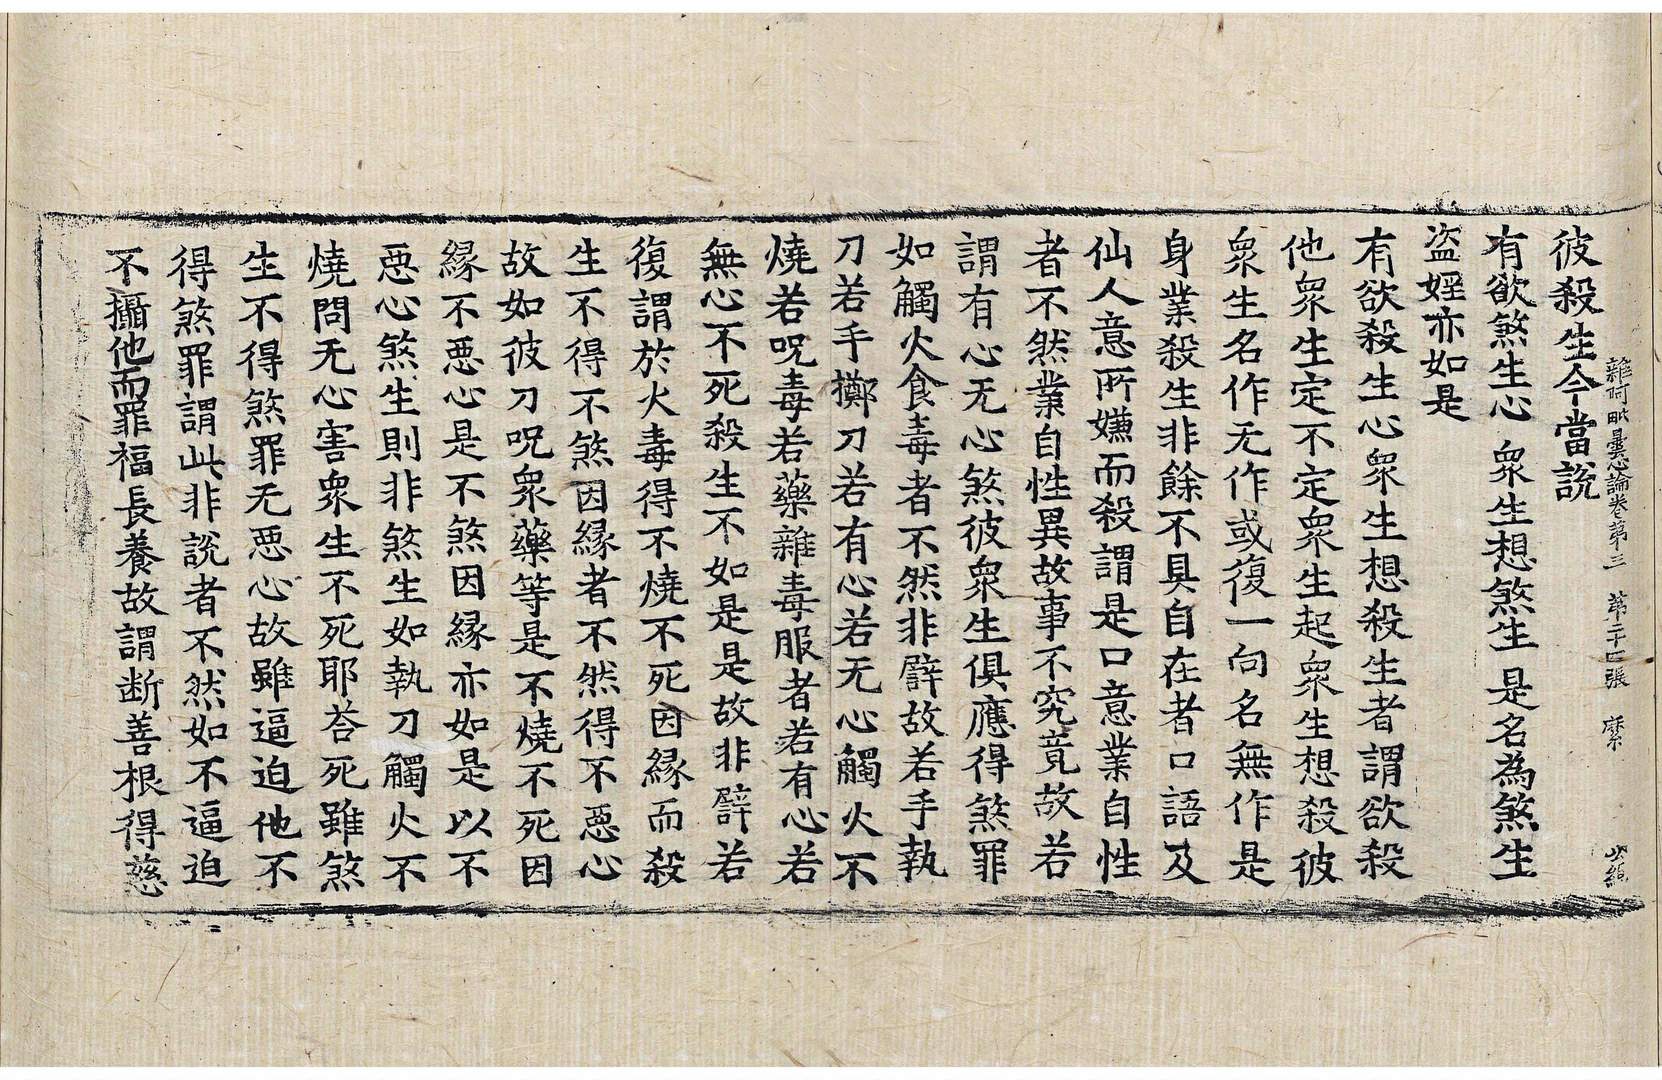 雜阿毗曇心論卷第三 第二十四張 縻
彼殺生今當說
有欲煞生心 衆生想煞生 是名為煞生
盗婬亦如是
有欲殺生心衆生想殺生者謂欲殺
他衆生定不定衆生起衆生想殺彼
衆生名作无作或復一向名無作是
身業殺生非餘不具自在者口語及
仙人意所嫌而殺謂是口意業自性
者不然業自性異故事不究竟故若
謂有心无心煞彼衆生俱應得煞罪
如觸火食毒者不然非譬故若手執
刀若手擲刀若有心若无心觸火不
燒若呪毒若藥雜毒服者若有心若
無心不死殺生不如是是故非譬若
復謂於火毒得不燒不死因緣而殺
生不得不煞因緣者不然得不惡心
故如彼刀呪衆藥等是不燒不死因
緣不惡心是不煞因緣亦如是以不
惡心煞生則非煞生如執刀觸火不
燒問无心害衆生不死耶荅死雖煞
生不得煞罪无惡心故雖逼迫他不
得煞罪謂此非說者不然如不逼迫
不攝他而罪福長養故謂断善根得慈